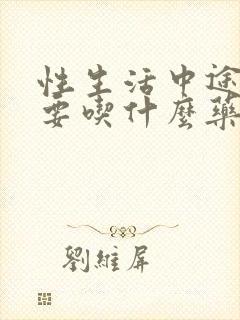 性生活中途
要喫什麼藥
劉維屏